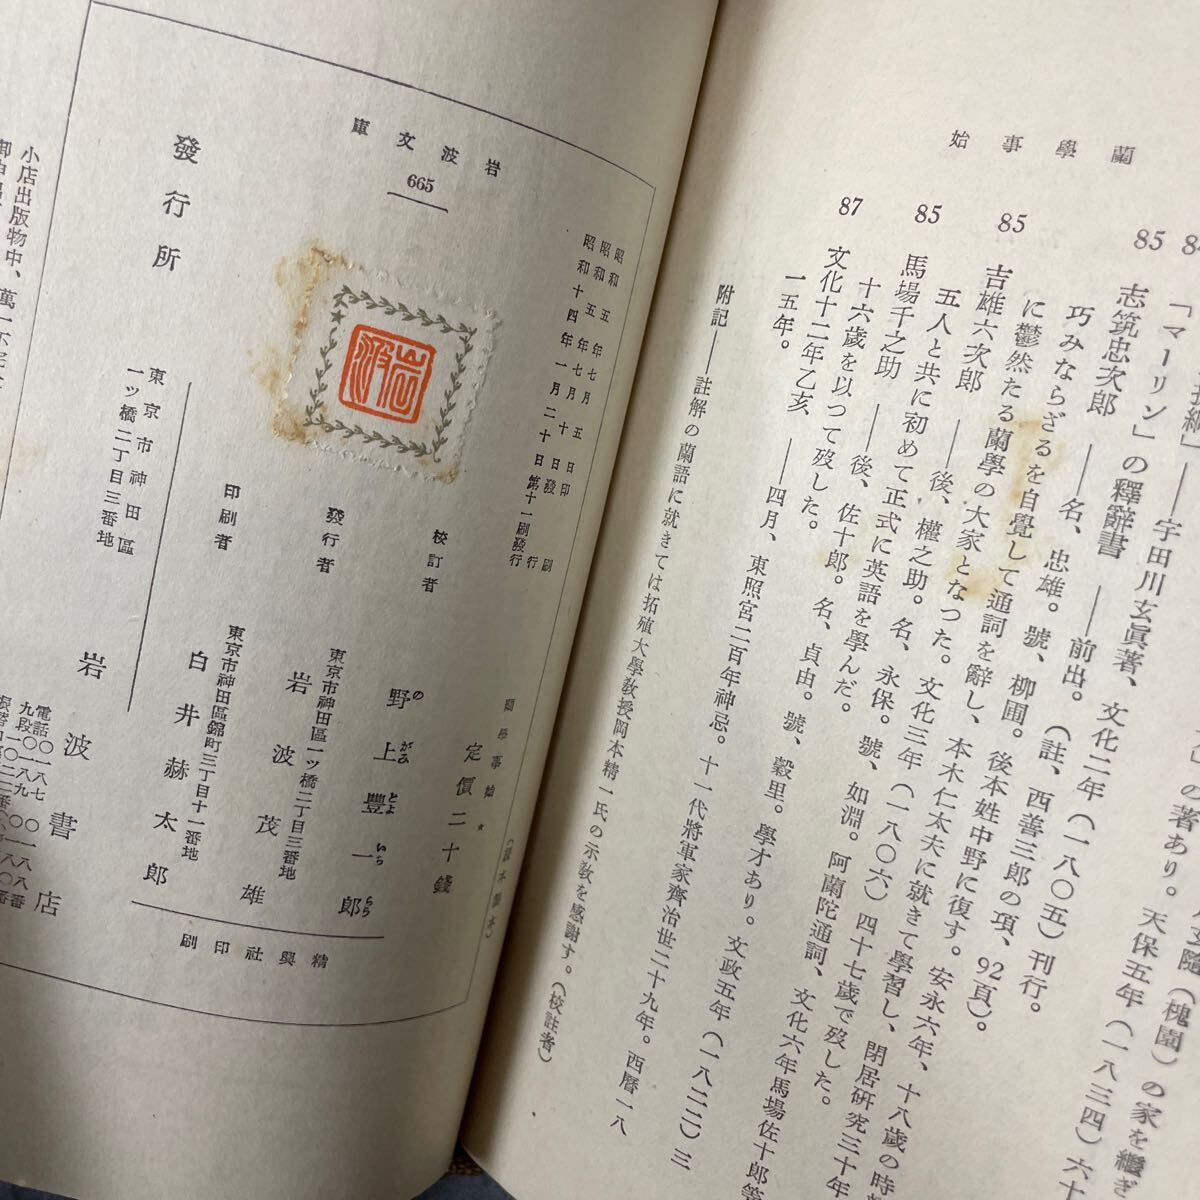 蘭學事始
「マーリン」の釋辭書――前出。(註、西善三郎の項、92頁)。
85 志筑忠次郎――名、忠雄。號、柳圃。後本姓中野に復す。安永六年、十八歲の時
巧みならざるを自覺して通詞を辭し、本木仁太夫に就きて學習し、閉居硏究三十年
に鬱然たる蘭學の大家となつた。文化三年(一八〇六)四十七歲で歿した。
85 吉雄六次郎――後、權之助。名、永保。號、如淵。阿蘭陀通詞、文化六年馬場佐十郎等
五人と共に初めて正式に英語を學んだ。
85 馬場千之助――後、佐十郎。名、貞由。號、穀里。學才あり。文政五年(一八二二)三
十六歲を以つて歿した。
87 文化十二年乙亥――四月、東照宮二百年神忌。十一代將軍家齊治世二十九年。西曆一八
一五年。
附記――註解の蘭語に就きては拓殖大學敎授岡本精一氏の示敎を感謝す。(校註者)
岩波文庫
665
昭和五年七月五日印刷
昭和五年七月十日發行
昭和十四年一月二十日第十一刷發行
蘭學事始 ★
定價二十錢
校訂者 野上豐一郎
のがみとよいちらう
發行者 東京市神田區一ツ橋二丁目三番地
岩波茂雄
印刷者 東京市神田區錦町三丁目十一番地
白井赫太郎
精興社印刷
岩波
發行所
東京市神田區
一ツ橋二丁目三番地
岩波書店
小店出版物中、萬一不完